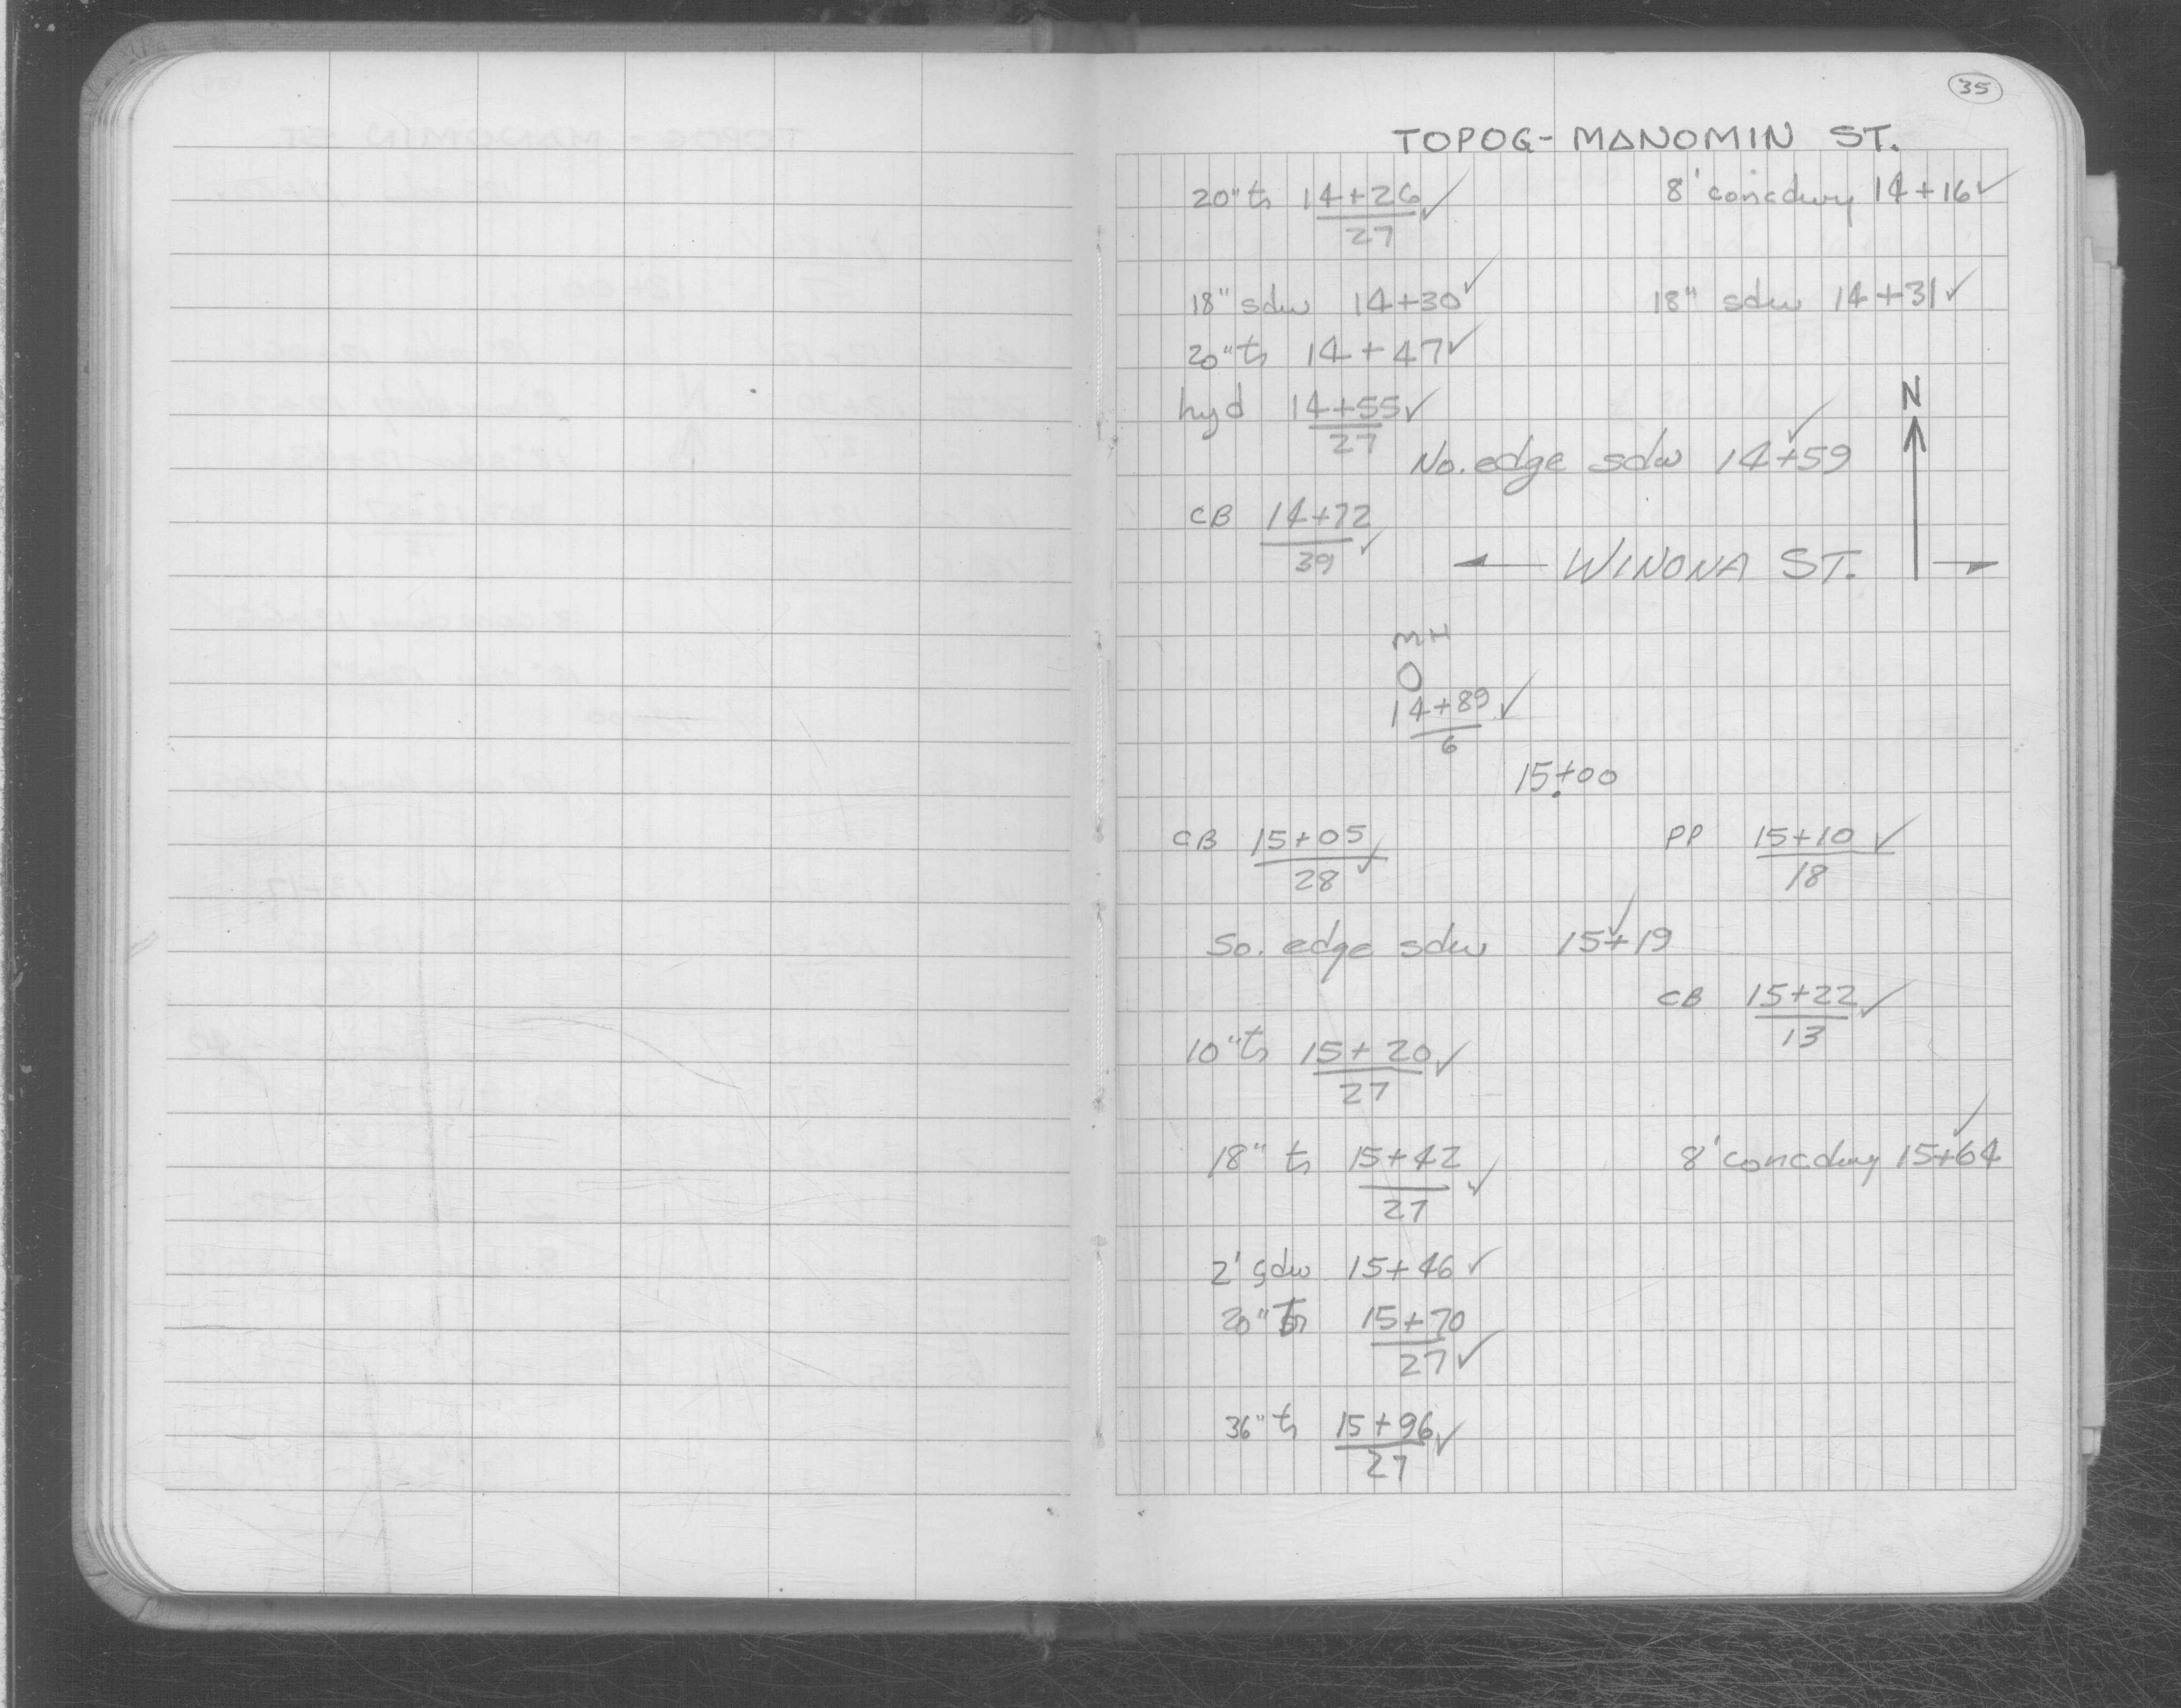 35
TOPOG- MANOMIN ST.
20" tr 14+26 ✓ 8' concdwy 14+16 ✓
27
18" sdw 14+30 ✓ 18" sdw 14+31 ✓
20" tr 14+47 ✓
hyd 14+55 ✓ N
27
No. edge sdw 14+59 ✓
CB 14+72
39 ✓
← WINONA ST. →
MH
14+89 ✓
6
15+00
CB 15+05 ✓ PP 15+10 ✓
28 18
So. edge sdw 15+19 ✓
CB 15+22 ✓
13
10" tr 15+20 ✓
27
18" tr 15+42 ✓ 8' concdwy 15+64 ✓
27
2' sdw 15+46 ✓
20" tr 15+70
27 ✓
36" tr 15+96 ✓
27